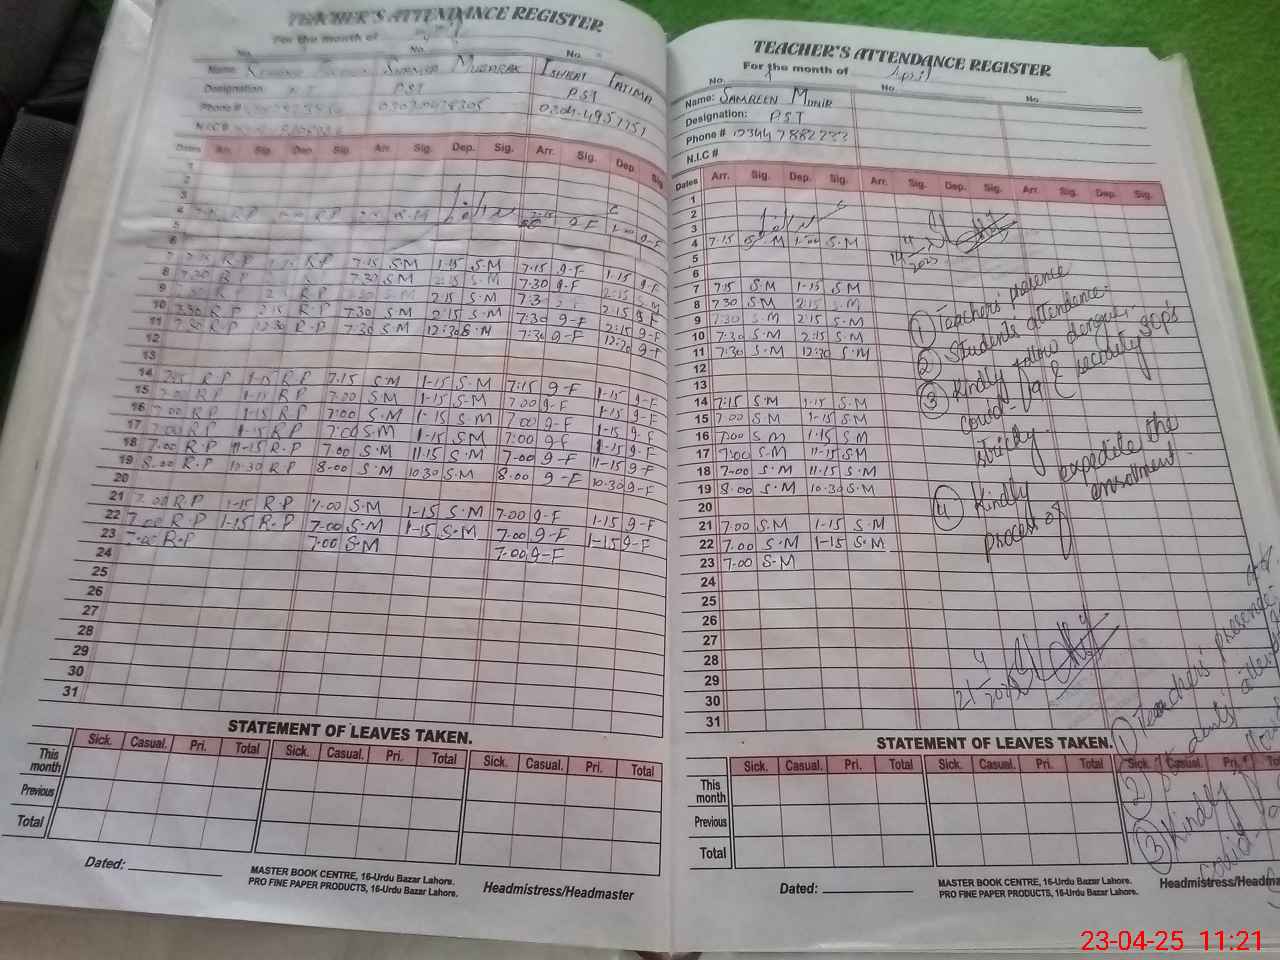 TEACHER'S ATTENDANCE REGISTER
For the month of
No. No. No.
Name: SUMAIRA MUBARAK ISHRAT FATIMA
Designation: PST PST
Phone # 0304-4951751
N.I.C #
Dates Arr. Sig. Dep. Sig. Arr. Sig. Dep. Sig. Arr. Sig. Dep. Sig.
1
2
3
4 R.P R.P S.M 7:15 g-F 1-00 g-F
5
6
7 7:15 R.P R.P 7.15 S.M 1-15 S.M 7.15 g-F 1-15 g-F
8 7.30 R.P R.P 7.30 S.M 2:15 S.M 7:30 g-F 2:15
9 2:15 S.M 7:3 2:15 g-F
10 7.30 R.P 2:15 R.P 7:30 S.M 2:15 S.M 7:30 g-F 2:15 g-F
11 7:30 R.P 12:30 R.P 7:30 S.M 12:30 S.M 7:30 g-F 12:30 g-F
12
13
14 7:15 R.P 1-15 R.P 7.15 S.M 1-15 S.M 7:15 g-F 1-15 g-F
15 7.00 R.P 1-15 R.P 7.00 S.M 1-15 S.M 7.00 g-F 1-15 g-F
16 7.00 R.P 1-15 R.P 7:00 S.M 1-15 S.M 7.00 g-F 1-15 g-F
17 7:00 R.P 1-15 R.P 7:00 S.M 1-15 S.M 7:00 g-F 1-15 g-F
18 7.00 R.P 11-15 R.P 7.00 S.M 11.15 S.M 7-00 g-F 11-15 g-F
19 8.00 R.P 10:30 R.P 8-00 S.M 10:30 S.M 8.00 g-F 10-30 g-F
20
21 7.00 R.P 1-15 R.P 7.00 S.M 1-15 S.M 7.00 g-F 1-15 g-F
22 7.00 R.P 1-15 R.P 7.00 S.M 1-15 S.M 7.00 g-F 1-15 g-F
23 7.00 R.P 7.00 S.M 7.00 g-F
24
25
26
27
28
29
30
31
STATEMENT OF LEAVES TAKEN.
Sick. Casual. Pri. Total Sick. Casual. Pri. Total Sick. Casual. Pri. Total
This month
Previous
Total
Dated:
MASTER BOOK CENTRE, 16-Urdu Bazar Lahore.
PRO FINE PAPER PRODUCTS, 16-Urdu Bazar Lahore.
Headmistress/Headmaster
TEACHER'S ATTENDANCE REGISTER
For the month of April
No. No. No
Name: SAMREEN MUNIR
Designation: PST
Phone # 03447882233
N.I.C #
Dates Arr. Sig. Dep. Sig. Arr. Sig. Dep. Sig. Arr. Sig. Dep. Sig.
1
2
3
4 7.15 S.M 1-00 S.M
5
6
7 7.15 S.M 1-15 S.M
8 7.30 S.M 2:15 S.M
9 7:30 S.M 2:15 S.M
10 7:30 S.M 2:15 S.M
11 7:30 S.M 12:30 S.M
12
13
14 7:15 S.M 1-15 S.M
15 7.00 S.M 1-15 S.M
16 7.00 S.M 1-15 S.M
17 7:00 S.M 11-15 S.M
18 7-00 S.M 11.15 S.M
19 8.00 S.M 10-30 S.M
20
21 7.00 S.M 1-15 S.M
22 7.00 S.M 1-15 S.M
23 7-00 S.M
24
25
26
27
28
29
30
31
14-4-2025
① Teachers' presence
② Students attendance.
③ Kindly follow dengue,
covid-19 & security SOP's
strictly.
④ Kindly expedite the
process of enrollment.
21-4-2025
① Teachers' presence
② Students' atten
③ Kindly
covid-
STATEMENT OF LEAVES TAKEN.
Sick. Casual. Pri. Total Sick. Casual. Pri. Total Sick. Casual. Pri.
This month
Previous
Total
Dated:
MASTER BOOK CENTRE, 16-Urdu Bazar Lahore.
PRO FINE PAPER PRODUCTS, 16-Urdu Bazar Lahore.
Headmistress/Headma
23-04-25 11:21